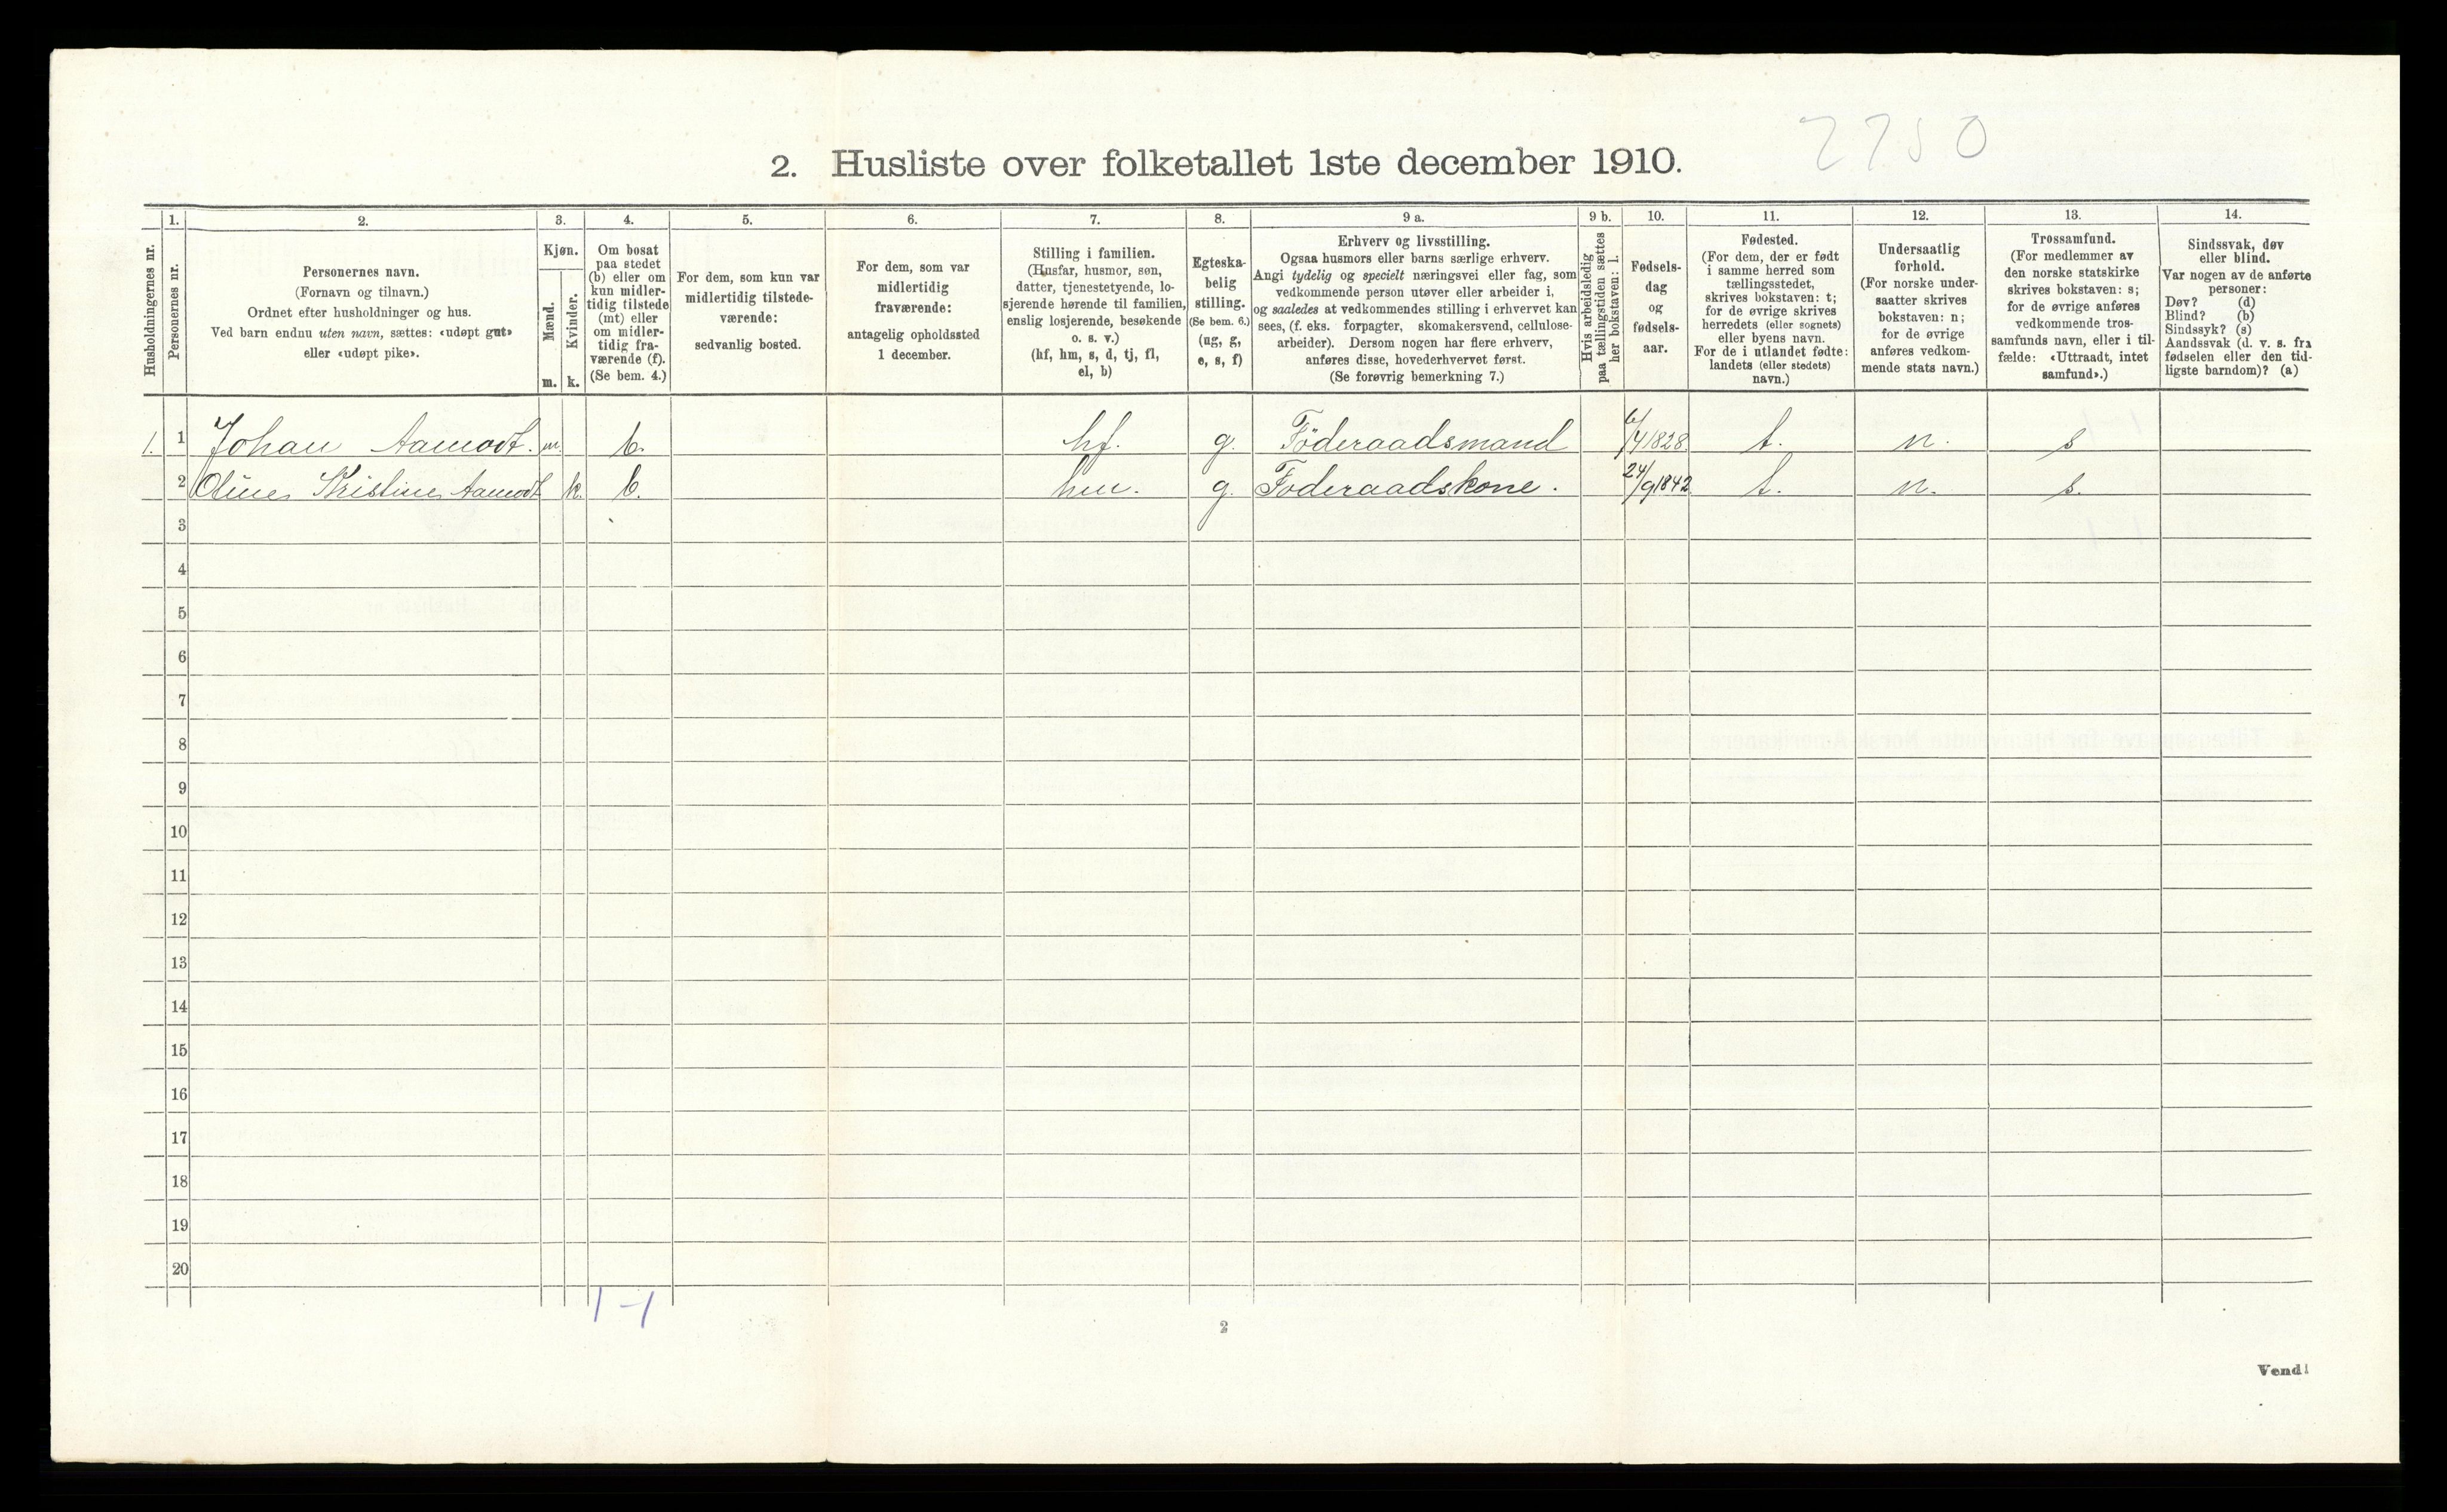 2750
2. Husliste over folketallet 1ste december 1910.
Husholdningernes nr.
1.
Personernes nr.
2.
Personernes navn.
(Fornavn og tilnavn.)
Ordnet efter husholdninger og hus.
Ved barn endnu uten navn, sættes: «udøpt gut»
eller «udøpt pike».
3.
Kjøn.
Mænd.
Kvinder.
m. k.
4.
Om bosat
paa stedet
(b) eller om
kun midler-
tidig tilstede
(mt) eller
om midler-
tidig fra-
værende (f).
(Se bem. 4.)
5.
For dem, som kun var
midlertidig tilstede-
værende:
sedvanlig bosted.
6.
For dem, som var
midlertidig
fraværende:
antagelig opholdssted
1 december.
7.
Stilling i familien.
(Husfar, husmor, søn,
datter, tjenestetyende, lo-
sjerende hørende til familien,
enslig losjerende, besøkende
o. s. v.)
(hf, hm, s, d, tj, fl,
el, b)
8.
Egteska-
belig
stilling.
(Se bem. 6.)
(ug, g,
e, s, f)
9 a.
Erhverv og livsstilling.
Ogsaa husmors eller barns særlige erhverv.
Angi tydelig og specielt næringsvei eller fag, som
vedkommende person utøver eller arbeider i,
og saaledes at vedkommendes stilling i erhvervet kan
sees, (f. eks. forpagter, skomakersvend, cellulose-
arbeider). Dersom nogen har flere erhverv,
anføres disse, hovederhvervet først.
(Se forøvrig bemerkning 7.)
9 b.
Hvis arbeidsledig
paa tællingstiden sættes
her bokstaven: l.
10.
Fødsels-
dag
og
fødsels-
aar.
11.
Fødested.
(For dem, der er født
i samme herred som
tællingsstedet,
skrives bokstaven: t;
for de øvrige skrives
herredets (eller sognets)
eller byens navn.
For de i utlandet fødte:
landets (eller stedets)
navn.)
12.
Undersaatlig
forhold.
(For norske under-
saatter skrives
bokstaven: n;
for de øvrige
anføres vedkom-
mende stats navn.)
13.
Trossamfund.
(For medlemmer av
den norske statskirke
skrives bokstaven: s;
for de øvrige anføres
vedkommende tros-
samfunds navn, eller i til-
fælde: «Uttraadt, intet
samfund».)
14.
Sindssvak, døv
eller blind.
Var nogen av de anførte
personer:
Døv? (d)
Blind? (b)
Sindssyk? (s)
Aandssvak (d. v. s. fra
fødselen eller den tid-
ligste barndom)? (a)
1. 1 Johan Aamodt. m. b. hf. g. Föderaadsmand 6/4 1828. t. n. s
2 Oline Kristine Aamodt k. b. hm. g. Foderaadskone. 24/9 1842 t. n. s.
3
4
5
6
7
8
9
10
11
12
13
14
15
16
17
18
19
20
1 - 1
2
Vend!